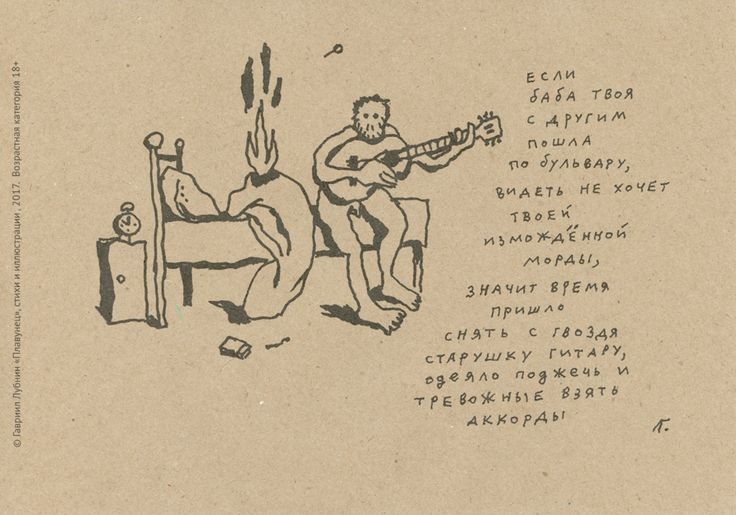 если
баба твоя
с другим
пошла
по бульвару,
видеть не хочет
твоей
измождённой
морды,
значит время
пришло
снять с гвоздя
старушку гитару,
одеяло поджечь и
тревожные взять
аккорды
Г.
© Гавриил Лубнин «Плавунец», стихи и иллюстрации, 2017. Возрастная категория 18+